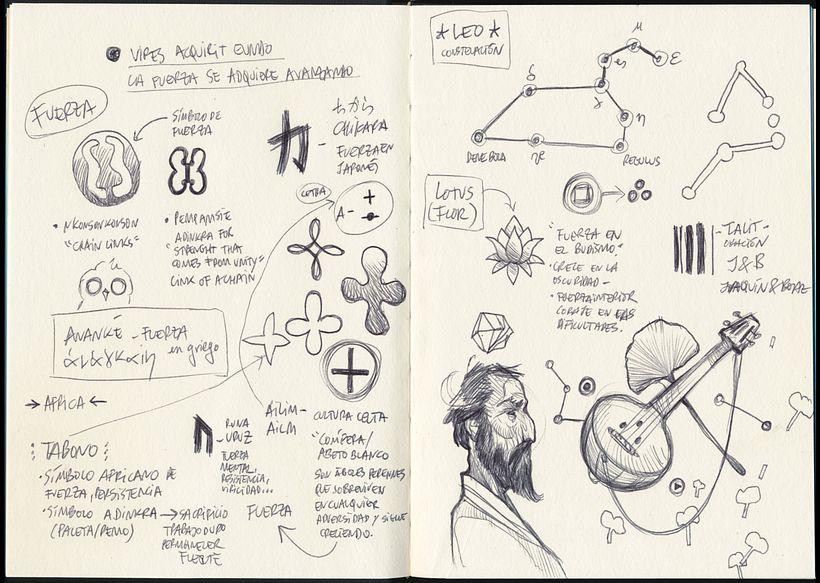 VIRES ACQUIRIT EUNDO
LA FUERZA SE ADQUIERE AVANZANDO
FUERZA
SÍMBOLO DE
FUERZA
力
ちから
CHIKARA
FUERZA EN
JAPONÉS
LETRA
A -
• NKONSONKONSON
"CHAIN LINKS"
• PEMPAMSIE
ADINKRA FOR
"STRENGHT THAT
COMES FROM UNITY"
LINK OF A CHAIN
ANANKÉ - FUERZA
en griego
→ AFRICA ←
TABONO:
• SÍMBOLO AFRICANO DE
FUERZA, PERSISTENCIA
• SÍMBOLO ADINKRA
(PALETA/REMO)
→ SACRIFICIO
TRABAJO DURO
PERMANECER
FUERTE
RUNA
URUZ
FUERZA
MENTAL,
RESISTENCIA,
VIRILIDAD...
FUERZA
AILIM-
AILM
CULTURA CELTA
"CONÍFERA/
ABETO BLANCO
SON ÁRBOLES PERENNES
QUE SOBREVIVEN
EN CUALQUIER
ADVERSIDAD Y SIGUE
CRECIENDO.
★ LEO ★
CONSTELACIÓN
μ
ε
δ
γ
η
DENEBOLA
REGULUS
LOTUS
(FLOR)
"FUERZA EN
EL BUDISMO."
• CRECE EN LA
OSCURIDAD -
• FUERZA INTERIOR
EN LAS
DIFICULTADES.
- TALIT -
J&B
JOAQUÍN &